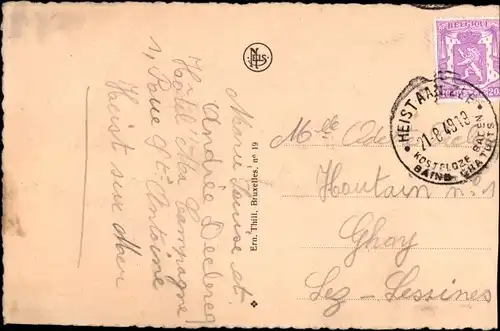 Marie Louise et
Andrée Declercq
Hôtel "Ma Campagne"
1, Rue St. Antoine
Heist sur Mer
NELS
Ern. Thill, Bruxelles, nº 19
BELGIQUE
HEIST AAN ZEE
21-8 49 19
KOSTELOZE BADEN
BAINS GRATUITS
Mlle
Houtain nº 1
Ghoy
Lez-Lessines